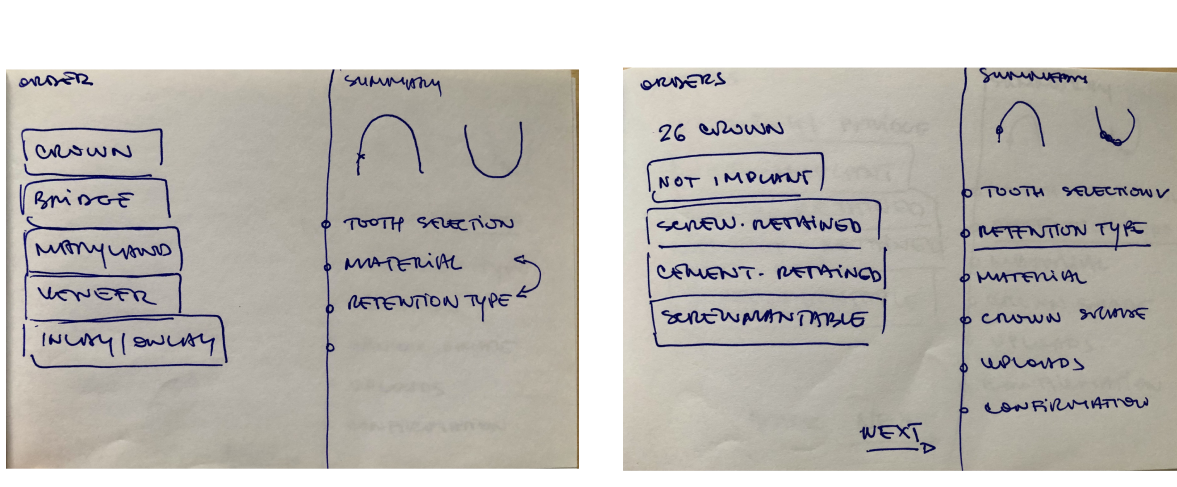 ORDER
CROWN
BRIDGE
MARYLAND
VENEER
INLAY/ONLAY
SUMMARY
TOOTH SELECTION
MATERIAL
RETENTION TYPE
ORDERS
26 CROWN
NOT IMPLANT
SCREW-RETAINED
CEMENT-RETAINED
SCREWMANTABLE
NEXT
SUMMARY
TOOTH SELECTION V
RETENTION TYPE
MATERIAL
CROWN SHADE
UPLOADS
CONFIRMATION